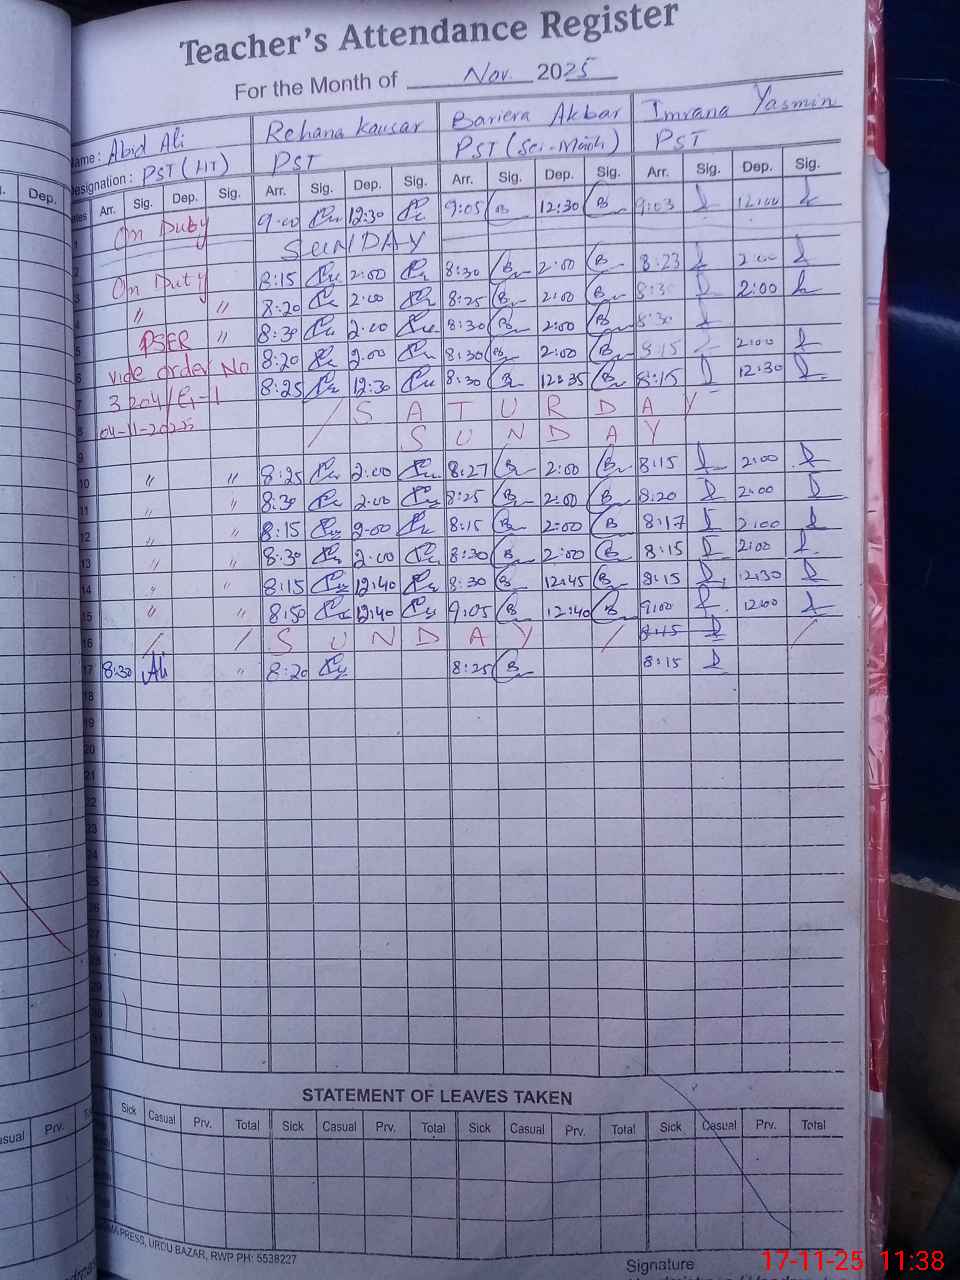 Teacher's Attendance Register
For the Month of Nov. 2025
ame : Abid Ali Rehana Kausar Bariera Akbar Imrana Yasmin
esignation : PST (HT) PST PST (Sci-Math) PST
Dep. Arr. Sig. Dep. Sig. Arr. Sig. Dep. Sig. Arr. Sig. Dep. Sig. Arr. Sig. Dep. Sig.
1 On Duty 9:00 12:30 9:05 12:30 9:03 12:00
2 SUNDAY
3 On Duty 8:15 2:00 8:30 2:00 8:23 2:00
4 " " 8:20 2:00 8:25 2:00 8:30 2:00
5 PSER " 8:30 2:00 8:30 2:00 8:30
6 vide order No 8:20 2:00 8:30 2:00 8:15 2:00
7 3204/E1-1 8:25 12:30 8:30 12:35 8:15 12:30
8 04-11-2025 / SATURDAY
9 SUNDAY
10 " " 8:25 2:00 8:27 2:00 8:15 2:00
11 " " 8:30 2:00 8:25 2:00 8:20 2:00
12 " " 8:15 2:00 8:15 2:00 8:17 2:00
13 " " 8:30 2:00 8:30 2:00 8:15 2:00
14 " " 8:15 12:40 8:30 12:45 8:15 12:30
15 " " 8:50 12:40 9:05 12:40 9:00 12:00
16 / / SUNDAY / 8:15 /
17 8:30 Ali " 8:20 8:25 8:15
18
19
20
21
22
23
24
25
STATEMENT OF LEAVES TAKEN
Sick Casual Prv. Total Sick Casual Prv. Total Sick Casual Prv. Total Sick Casual Prv. Total
asual Prv.
PRESS, URDU BAZAR, RWP PH: 5538227
Signature
17-11-25 11:38